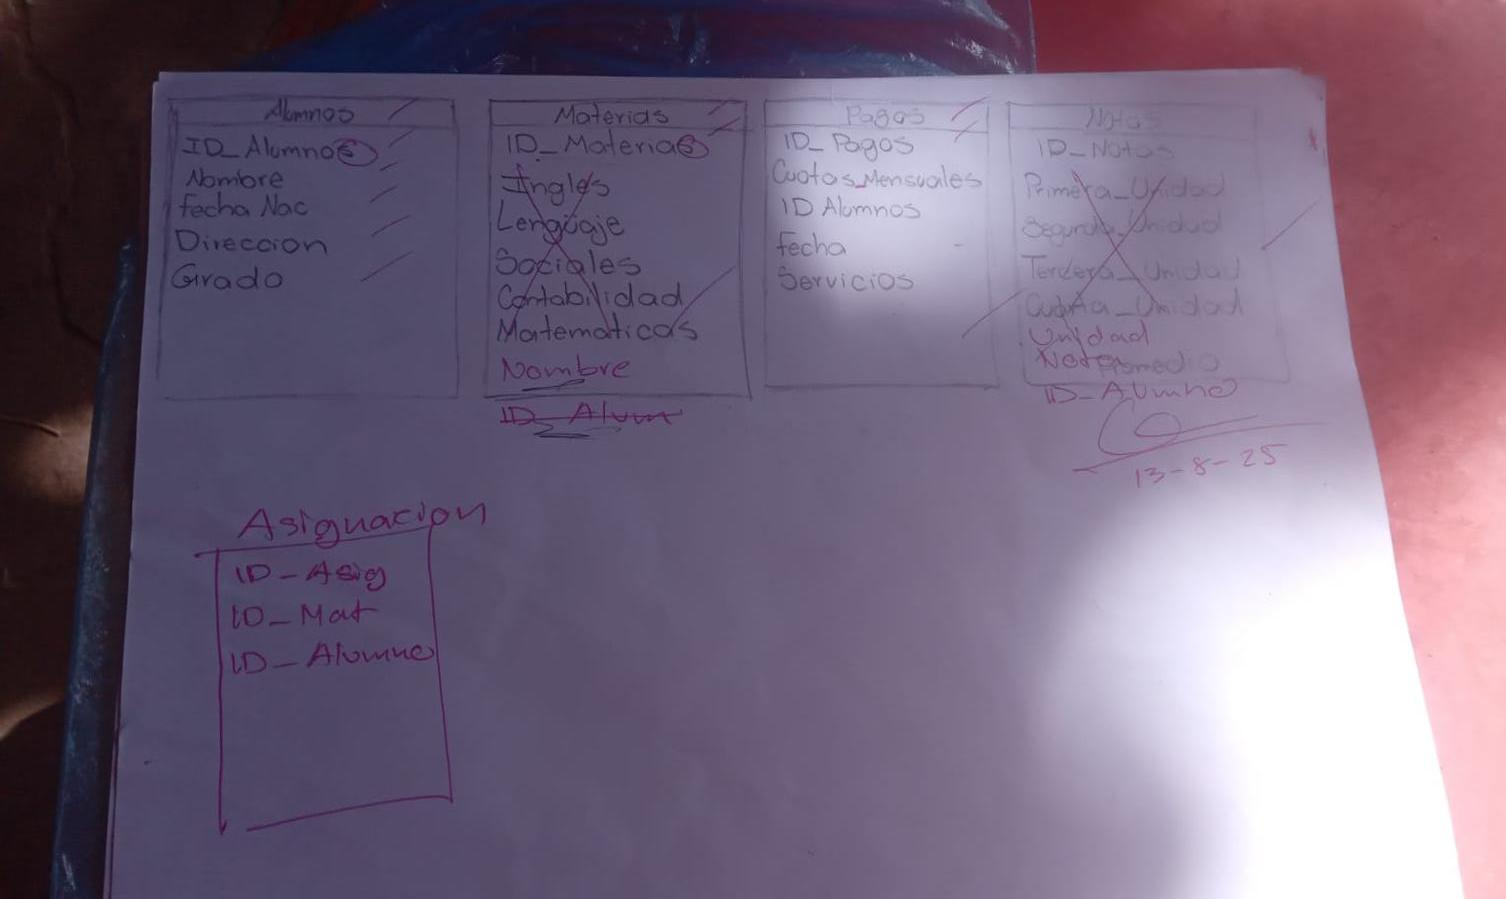 Alumnos
ID_Alumnos
Nombre
fecha Nac
Direccion
Grado
Materias
ID_Materias
Ingles
Lenguaje
Sociales
Contabilidad
Matematicas
Nombre
ID_Alum
Pagos
ID_Pagos
Cuotas_Mensuales
ID Alumnos
fecha
Servicios
Notas
ID_Notas
Primera_Unidad
Segunda_Unidad
Tercera_Unidad
Cuarta_Unidad
Unidad
Nota Promedio
ID_Alumno
13-8-25
Asignacion
ID-Asig
ID_Mat
ID_Alumno